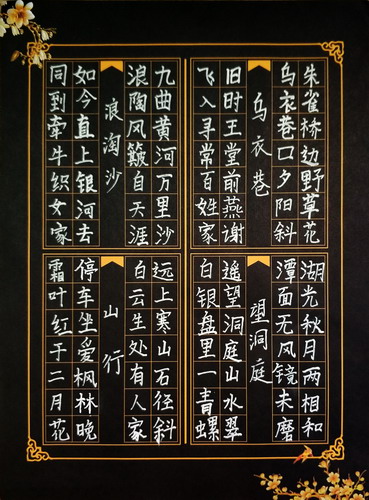 朱雀桥边野草花
乌衣巷口夕阳斜
乌衣巷
旧时王堂前燕谢
飞入寻常百姓家
九曲黄河万里沙
浪陶风簸自天涯
浪淘沙
如今直上银河去
同到牵牛织女家
湖光秋月两相和
潭面无风镜未磨
望洞庭
遥望洞庭山水翠
白银盘里一青螺
远上寒山石径斜
白云生处有人家
山行
停车坐爱枫林晚
霜叶红于二月花